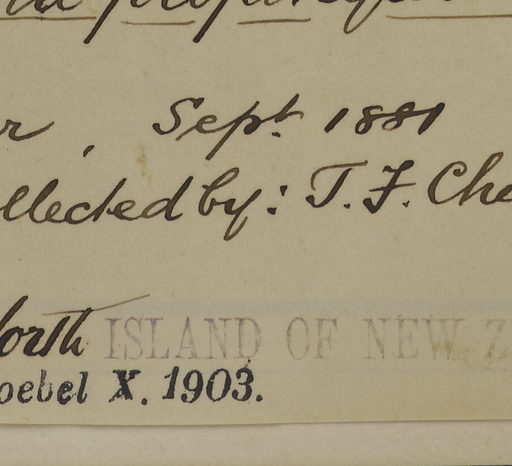 r, Sept. 1881
llected by: T. F. Che
orth ISLAND OF NEW Z
oebel X. 1903.